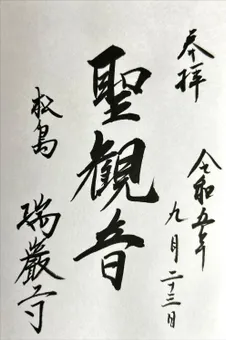 奉拝
令和五年
九月二十三日
聖観音
松島
瑞巖寺